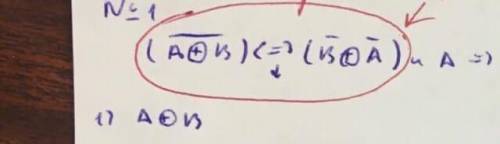 № 1
(A̅ ̅⊕̅ ̅B̅) <=> (B̅ ⊕ A̅) и A =>
1) A ⊕ B